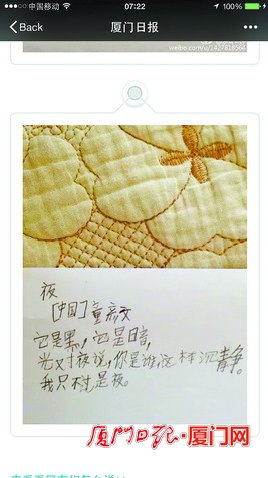 中国移动 07:22 100%
Back 厦门日报
weibo.com/u/1427818564
夜
[中国]童
它是黑,它是暗,
光对夜说,你是谁,这样沉静。
我只过是夜。
厦门日报·厦门网